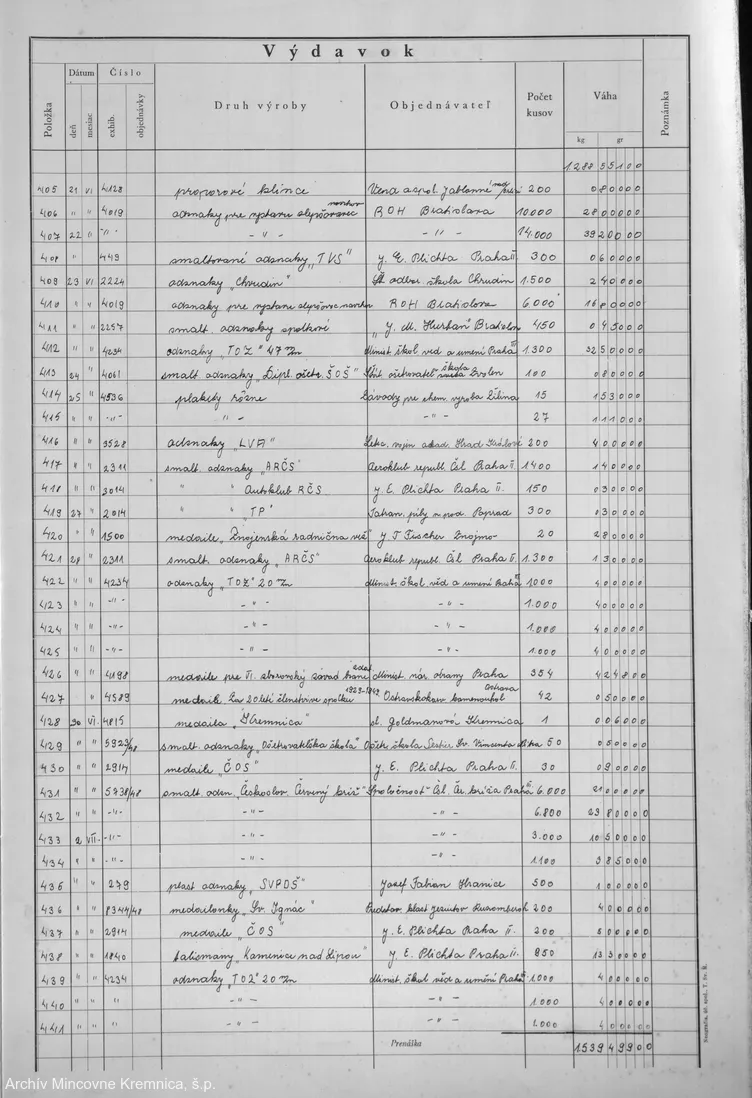 Výdavok
Položka Dátum Číslo Druh výroby Objednávateľ Počet kusov Váha Poznámka
deň mesiac exhib. objednávky kg gr
1288 55100
405 21 VI 4128 proporové klince 200 080000
406 " " 4019 odznaky pre výstavu ROH Bratislava 10.000 2800000
407 22 " -"- -"- -"- 14.000 3920000
408 " 449 smaltované odznaky "TVS" J. E. Plichta Praha II 300 060000
409 23 VI 2224 odznaky "Chrudim" odbor. škola Chrudim 1.500 240000
410 " " 4019 odznaky pre výstavu ROH Bratislava 6.000 1680000
411 " " 2257 smalt. odznaky spolkové "J. M. Hurban" Bratislava 450 045000
412 " " 4234 odznaky "TOZ" 47 Zn Minist škol věd a umění Praha III 1.300 3250000
413 24 " 4061 smalt. odznaky "Dipl. ošetr. ŠOŠ" škola Zvolen 100 080000
414 25 " 4936 plakety rôzne Závody pre chem. výrobu Žilina 15 153000
415 " " -"- -"- -"- 27 111000
416 " " 3528 odznaky "LVA" Letec. vojen. akad. Hrad. Králové 200 400000
417 " " 2311 smalt. odznaky "ARČS" Aeroklub republ. Čsl Praha II. 1400 140000
418 " " 3014 " " Autoklub RČS J. E. Plichta Praha II. 150 030000
419 27 " 2014 " " "TP" Tatran. píly n. pod. Poprad 300 030000
420 " " 1500 medaile "Znojemská radničná vež" J. T Fischer Znojmo 20 280000
421 28 " 2311 smalt. odznaky "ARČS" Aeroklub republ. Čsl Praha II. 1.300 130000
422 " " 4234 odznaky "TOZ" 20 Zn Minist. škol věd a umění Praha III 1000 400000
423 " " -"- -"- -"- 1.000 400000
424 " " -"- -"- -"- 1.000 400000
425 " " -"- -"- -"- 1.000 400000
426 " " 4198 medaile pre VI. zborovský závod bran. zdat. Minist. nár. obrany Praha 354 424800
427 " 4589 medaile za 20 leté členstvo spolku 1929-1949 Ostrava 42 050000
428 30 VI. 4815 medaila "Kremnica" sl. Goldmanová Kremnica 1 006000
429 " " 5923/48 smalt odznaky "Ošetrovateľská škola" Ošetr. škola Sestier Sv. Vincenta Nitra 50 050000
430 " " 2914 medaile "ČOS" J. E. Plichta Praha II. 30 090000
431 " " 5738/48 smalt. odzn. "Českoslov. Červený kríž" Spoločnosť Čsl. Čer. kríža Praha III 6.000 2100000
432 -"- -"- -"- 6.800 2380000
433 2 VII. -"- -"- -"- 3.000 1050000
434 " " -"- -"- -"- 1100 385000
435 " " 279 plast odznaky "SVPDŠ" Jozef Fabian Hranice 500 100000
436 " " 8344/48 medailonky "Sv. Ignác" Predstav. klášt jezuitov Ružomberok 200 400000
437 " " 2914 medaile "ČOS" J. E. Plichta Praha II. 200 600000
438 " " 1840 talismany "Kamenice nad Lipou" J. E. Plichta Praha II. 950 1330000
439 " " 4234 odznaky "TOZ" 20 Zn Minist. škol věd a umění Praha III 1.000 400000
440 " " " -"- -"- 1.000 400000
441 " " " -"- -"- 1.000 400000
Prenáška 1539 49900
Archív Mincovne Kremnica, š.p.